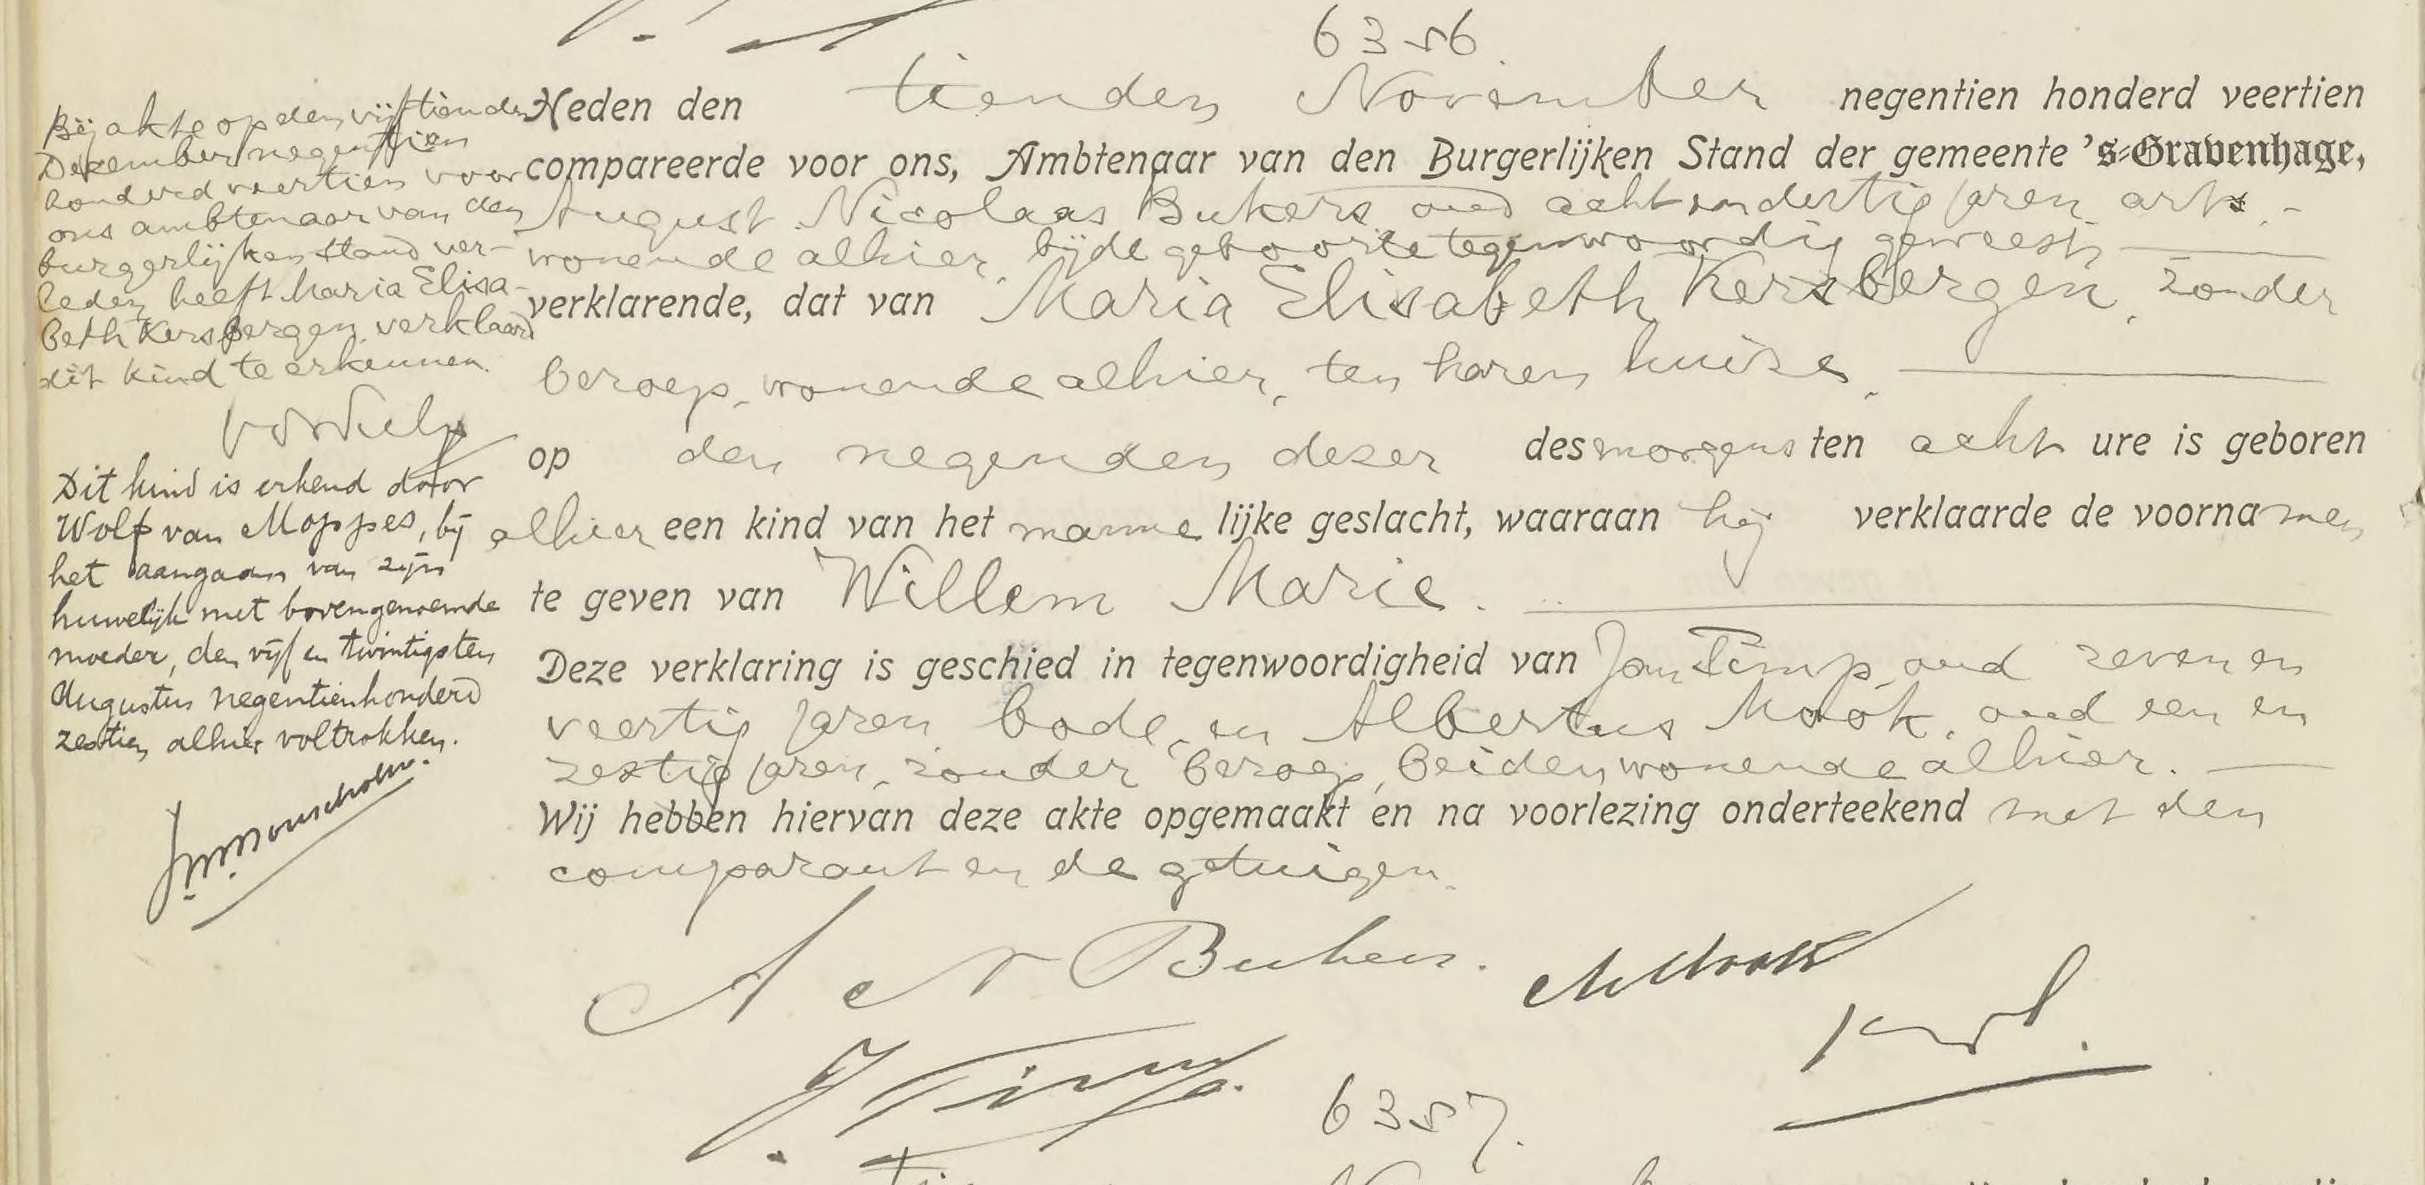 6356
Heden den tienden November negentien honderd veertien
compareerde voor ons, Ambtenaar van den Burgerlijken Stand der gemeente 's-Gravenhage,
August Nicolaas Bukers oud acht en dertig jaren arts,
wonende alhier, bij de geboorte tegenwoordig geweest
verklarende, dat van Maria Elisabeth Kersbergen, zonder
beroep, wonende alhier, ten haren huize,
op den negenden dezer des morgens ten acht ure is geboren
alhier een kind van het manne lijke geslacht, waaraan hij verklaarde de voorna men
te geven van Willem Marie.
Deze verklaring is geschied in tegenwoordigheid van Jan Timp, oud zeven en
veertig jaren bode, en Albertus Mook, oud een en
zestig jaren, zonder beroep, beiden wonende alhier.
Wij hebben hiervan deze akte opgemaakt en na voorlezing onderteekend met den
comparant en de getuigen.
A N Bukers.
AMook
J. Timp.
6357.
Bij akte op den vijftienden
December negentien
honderd veertien voor
ons ambtenaar van den
burgerlijken stand ver-
leden heeft Maria Elisa-
beth Kersbergen verklaard
dit kind te erkennen.
Dit kind is erkend door
Wolf van Moppes, bij
het aangaan van zijn
huwelijk met bovengenoemde
moeder, den vijf en twintigsten
Augustus negentienhonderd
zestien alhier voltrokken.